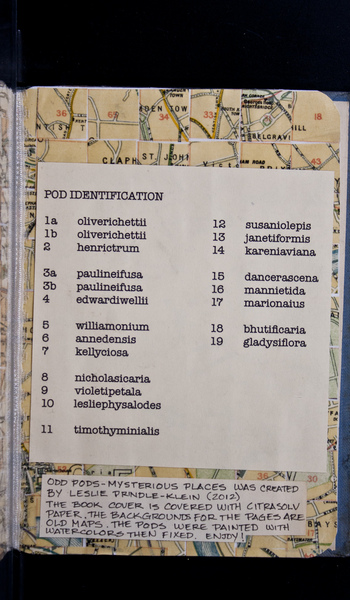 36
65
DEN TOW
34
33
18
NTISH T
HILL
BELGRAVI
CLAPH
ST. JOHN
43
POD IDENTIFICATION
1a oliverichettii
1b oliverichettii
2 henrictrum
3a paulineifusa
3b paulineifusa
4 edwardiwellii
5 williamonium
6 annedensis
7 kellyciosa
8 nicholasicaria
9 violetipetala
10 lesliephysalodes
11 timothyminialis
12 susaniolepis
13 janetiformis
14 kareniaviana
15 dancerascena
16 mannietida
17 marionaius
18 bhutificaria
19 gladysiflora
36
30
ODD PODS-MYSTERIOUS PLACES WAS CREATED
BY LESLIE PRINDLE-KLEIN (2012)
THE BOOK COVER IS COVERED WITH CITRASOLV
PAPER. THE BACKGROUNDS FOR THE PAGES ARE
OLD MAPS. THE PODS WERE PAINTED WITH
WATERCOLORS THEN FIXED. ENJOY!
BAYS